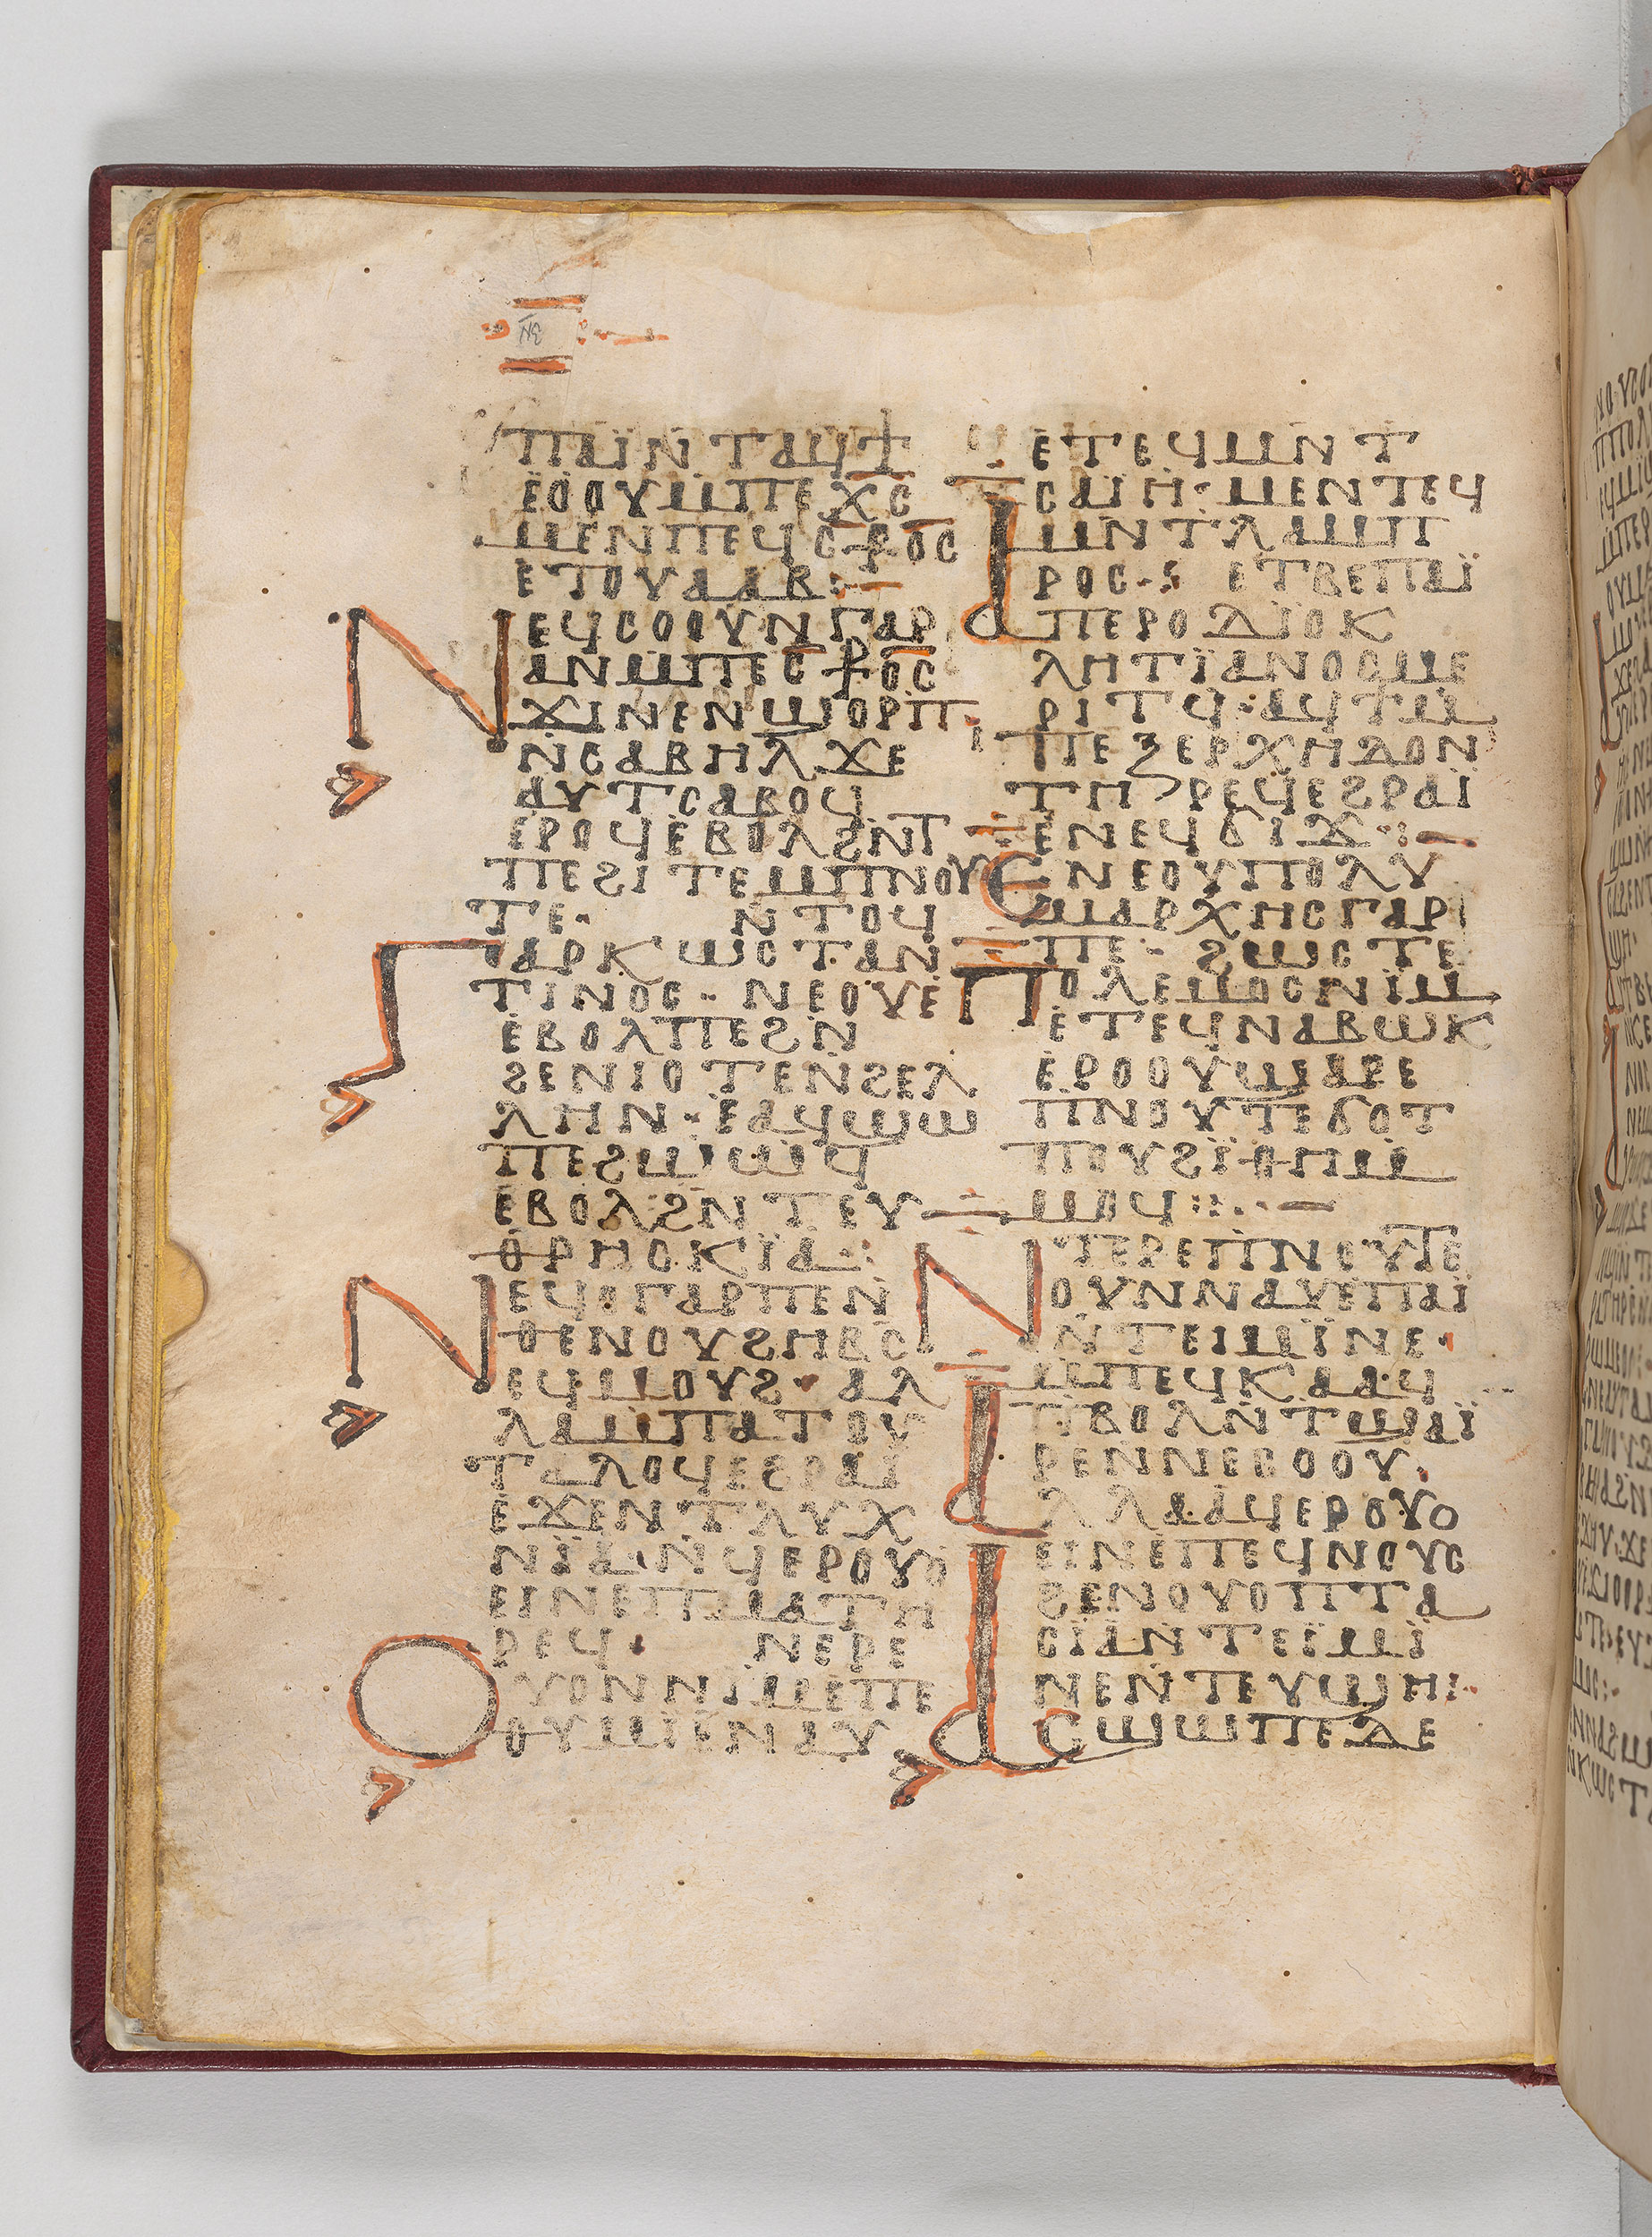 ⲛⲉ
ⲡⲁⲓ̈ⲛ̇ⲧⲁϥϯ
ⲉ̇ⲟ̇ⲟⲩⲙ̇ⲡⲉⲭ̅ⲥ̅
ⲙⲉⲛⲡⲉϥⲥ̅ⳁⲟ̅ⲥ̅
ⲉⲧⲟⲩⲁⲁⲃ:—
ⲛⲉϥⲥⲟⲟⲩⲛⲅⲁⲣ
ⲁⲛⲙ̇ⲡⲉⲥ̅ⳁⲟ̅ⲥ̅
ϫⲓⲛⲉⲛϣⲟⲣⲡ·
ⲛ̇ⲥⲁⲃⲏⲗϫⲉ
ⲁⲩⲧⲥⲁⲃⲟϥ
ⲉⲣⲟϥⲉ̇ⲃⲟⲗϩⲛ̇ⲧ
ⲡⲉϩⲓⲧⲉⲙⲡⲛⲟⲩ
ⲧⲉ· ⲛ̇ⲧⲟϥ
ⲅⲁⲣⲕⲱⲥⲧⲁⲛ
ⲧⲓⲛⲟⲥ· ⲛⲉⲟⲩⲉ̇
ⲉ̇ⲃⲟⲗⲡⲉϩⲛ̇
ϩⲉⲛⲓⲟⲧⲉⲛ̇ϩⲉⲗ
ⲗⲏⲛ·ⲉ̇ⲁϥϣⲱ
ⲡⲉϩⲱⲱϥ
ⲉ̇ⲃⲟⲗϩⲛ̇ⲧⲉⲩ
ⲑⲣⲏⲥⲕⲓ̈ⲁ·:
ⲛⲉϥⲟⲅⲁⲣⲡⲉⲛ̇
ⲑⲉⲛⲟⲩϩⲏⲃⲥ
ⲉϥⲙⲟⲩϩ· ⲁⲗ
ⲗⲁⲙ̇ⲡⲁⲧⲟⲩ
ⲧⲁⲗⲟϥⲉϩⲣⲁⲓ
ⲉ̇ϫⲉⲛⲧⲗⲩⲭ
ⲛⲓ̈ⲁ·ⲛ̇ϥⲉⲣⲟⲩⲟ̇
ⲉⲓⲛⲉⲡⲙⲁⲧⲏ
ⲣⲉϥ· ⲛⲉⲣⲉ
ⲟⲩⲟⲛⲛⲓⲙⲉ̇ⲡⲉ
ⲑⲩⲙⲓⲉ̇ⲛⲁⲩ
ⲉ̇ⲧⲉϥⲙⲛ̇ⲧ
ⲥⲁⲓ̈ⲏ·ⲙⲉⲛⲧⲉϥ
ⲙⲛ̇ⲧⲗⲁⲙⲡ
ⲣⲟⲥ· ⲉⲧⲃⲉⲡⲁⲓ̈
ⲁⲡⲉⲣⲟⲇⲓ̈ⲟⲕ
ⲗⲏⲧⲓ̈ⲁⲛⲟⲥⲙⲉ
ⲣⲓⲧϥ·ⲁϥⲧⲙ̇
ⲡⲉⲝⲉⲣⲭⲏⲇⲟⲛ
ⲧⲏⲣⲉϥⲉϩⲣⲁⲓ̈
ⲉ̇ⲛⲉϥϭⲓϫ·:—
ⲉⲛⲉⲟⲩⲡⲟⲗⲩ
ⲙⲁⲣⲭⲏⲥⲅⲁⲣ
ⲡⲉ· ϩⲱⲥⲧⲉ
ⲡⲟⲗⲉⲙⲟⲥⲛⲓ̈ⲙ
ⲉ̇ⲧⲉϥⲛⲁⲃⲱⲕ
ⲉ̇ⲣⲟⲟⲩϣⲁⲣⲉ
ⲡⲛⲟⲩⲧⲉϭⲟⲧ
ⲡⲟⲩϩⲓ̈ⲑⲏⲙ̇
ⲙⲟϥ::·—
ⲛⲧⲉⲣⲉⲡⲛⲟⲩⲧⲉ
ⲟⲩⲛⲛⲁⲩⲉ̇ⲡⲁⲓ̈
ⲛ̇ⲧⲉⲓⲙⲓ̈ⲛⲉ·
ⲙ̇ⲡⲉϥⲕⲁⲁϥ
ⲉⲃⲟⲗⲛ̇ⲧϣⲁⲓ̈
ⲣⲉⲛⲛⲉⲥⲟⲟⲩ·
ⲁⲗⲗⲁⲁϥⲉⲣⲟⲩⲟ
ⲉⲓⲛⲉⲡⲉϥⲛⲟⲩⲥ
ϩⲉⲛⲟⲩⲟⲡⲧⲁ
ⲥⲓ̈ⲁⲛ̇ⲧⲉⲓ̈ⲙⲓ̈
ⲛⲉⲛ̇ⲧⲉⲩϣⲏ:
ⲁⲥϣⲱⲡⲉⲇⲉ